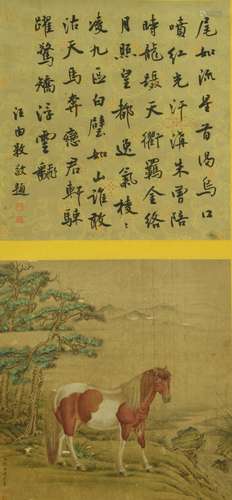 尾如流星首渴烏口
噴紅光汗溝朱曾陪
時龍蹑天衢羈金絡
月照皇都逸氣稜稜
凌九區白璧如山誰敢
沽天馬奔戀君軒駷
躍驚矯浮雲翻
汪由敦敬題